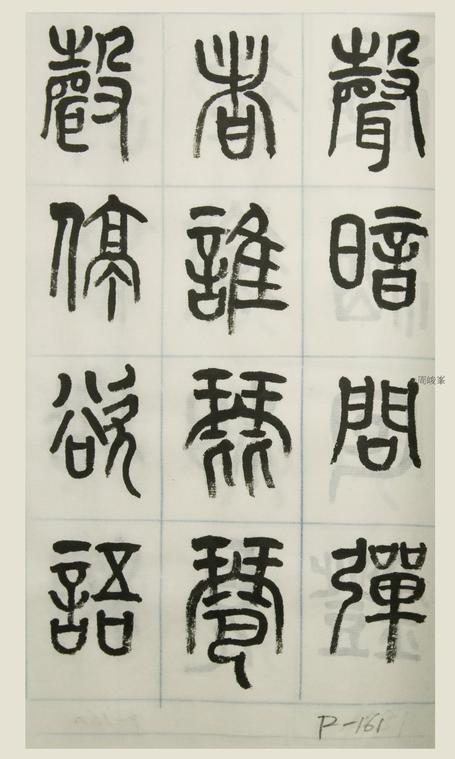 聲暗問彈
者誰琵琶
聲停欲語
周峻峯
P-161